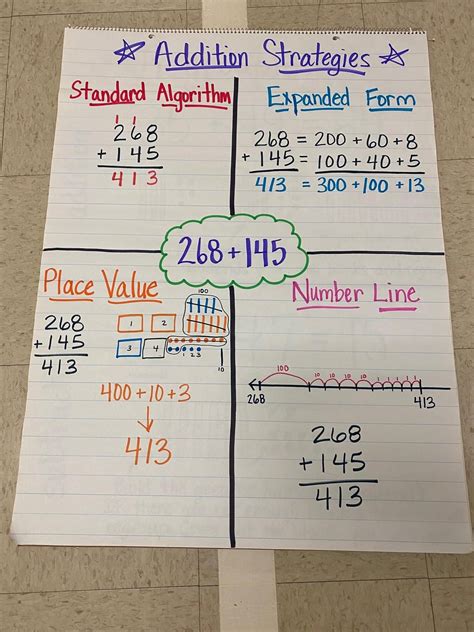 ☆ Addition Strategies ☆
Standard Algorithm
1 1
268
+ 145
413
Expanded Form
268 = 200 + 60 + 8
+ 145 = 100 + 40 + 5
413 = 300 + 100 + 13
268 + 145
Place Value
268
+ 145
413
100
1 2
3 4
1 2 3
10
400 + 10 + 3
↓
413
Number Line
100 10 10 10 10 1 1 1 1 1
268 413
268
+ 145
413